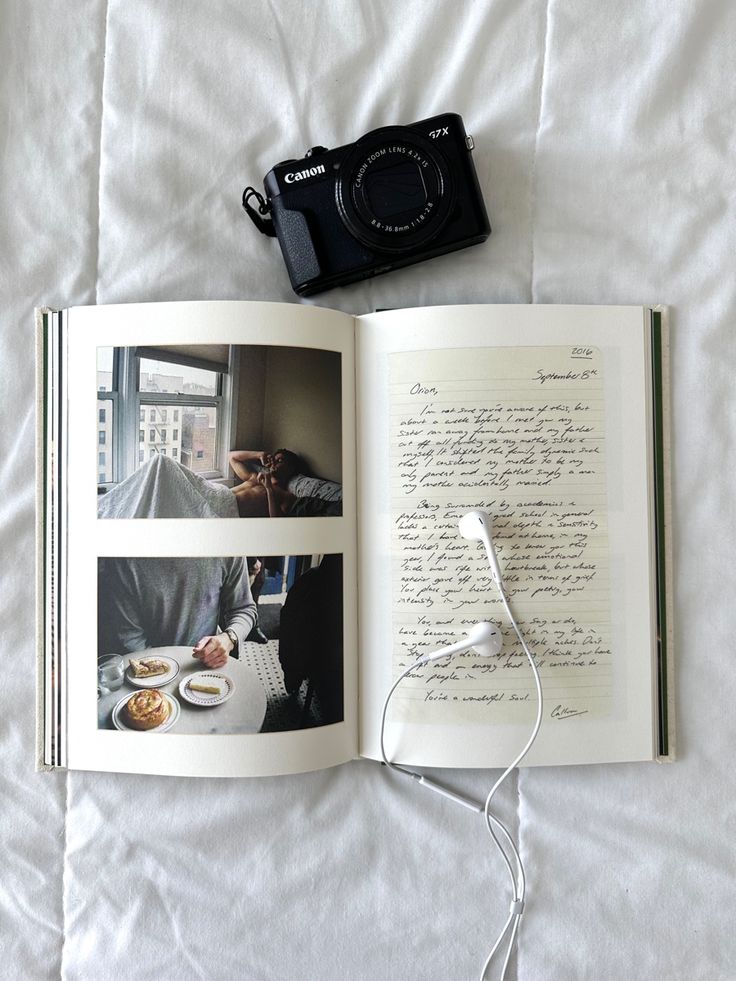 Canon
G7X
CANON ZOOM LENS 4.2x IS
8.8-36.8mm 1:1.8-2.8
2016
September 8th
Orion,
I'm not sure you're aware of this, but
about a week before I met you my
sister ran away from home and my father
cut off all funding to my mother, sister &
myself. It shifted the family dynamic such
that I considered my mother to be my
only parent and my father simply a man
my mother accidentally married.
Being surrounded by academics &
professors, grad school in general
lacks a certain depth & sensitivity
that I have at home, in my
mother's to know you this
year, I found a soul whose emotional
side was rife with heartbreak, but whose
exterior gave off very little in terms of grief.
You place your heart in your poetry, your
intensity in your
You, and everything you say or do,
have become a light in my life in
a year that multiple aches. Don't
stop I think you have
will continue to
people in.
You're a wonderful soul.